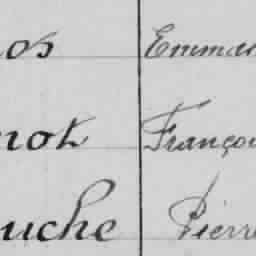 os Emman
not Françoi
uche Pierre